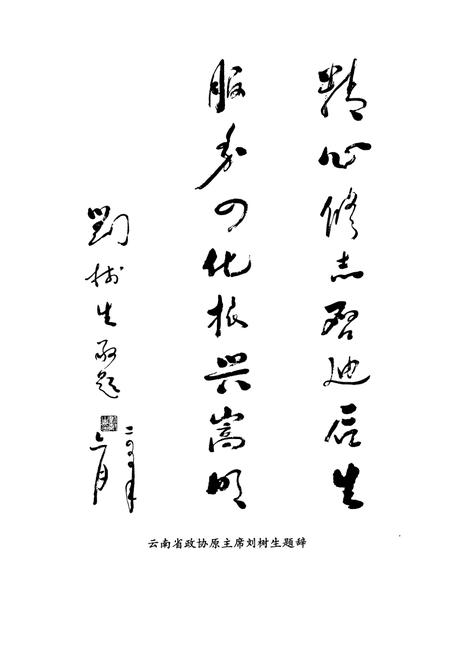 精心修志启迪后生
服务四化振兴嵩明
劉树生敬题
六月
云南省政协原主席刘树生题辞